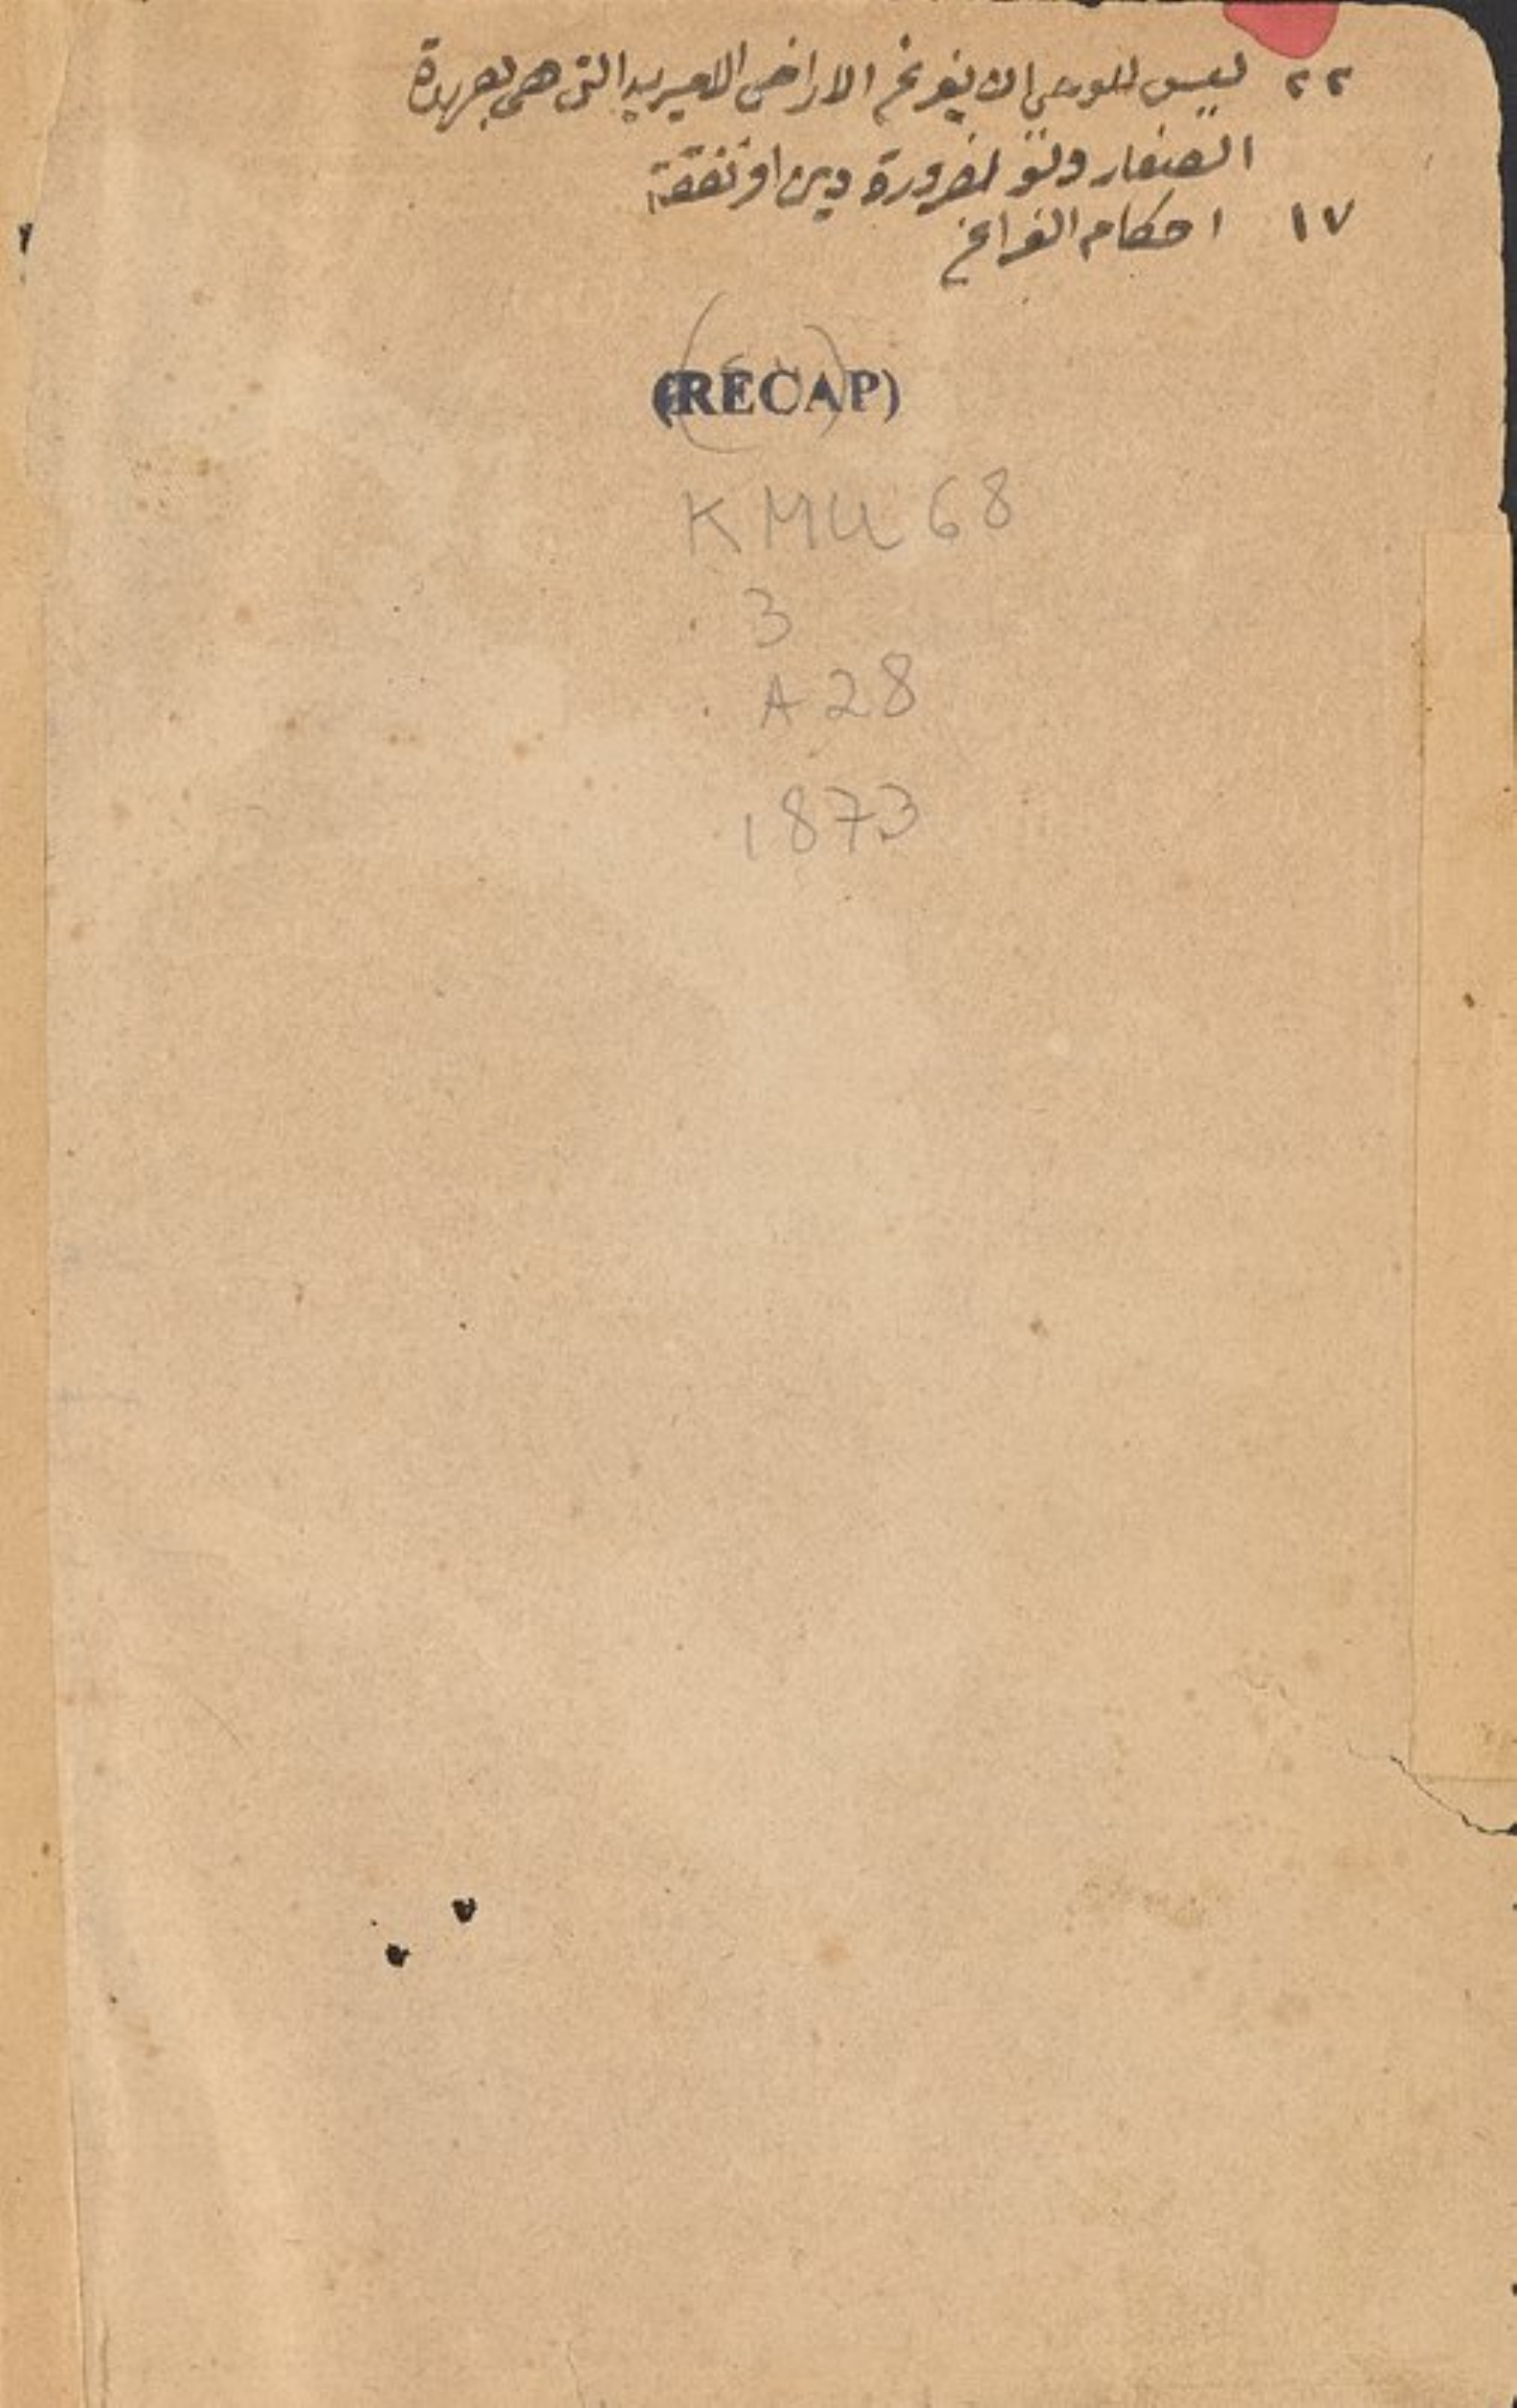 ٢٢ ليس للوصي ان يفرغ الاراضي الاميرية التي هي بعهدة
الصغار ولو لضرورة دين او نفقة
١٧ احكام الفراغ
(RECAP)
KMU 68
3
A 28
1873